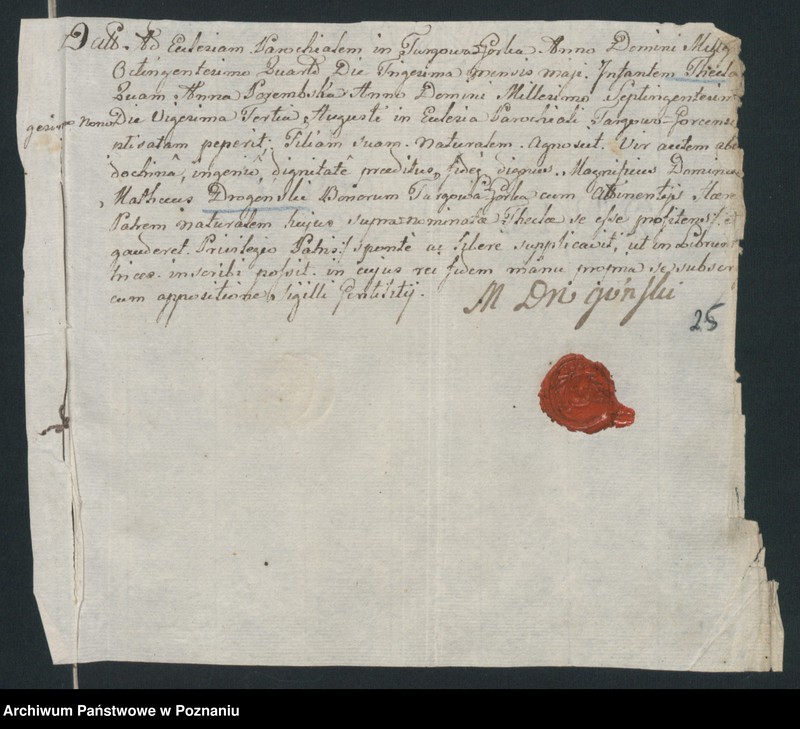 Datt. Ad Eclesiam Parochialem in Targowa Gorka Anno Domini Mill
Octingentesimo Quarto Die Trigesima mensis maji. Infantem Thecla
Quam Anna Porembska Anno Domini Millesimo Septingentesimo
gesimo Nono Die Vigesima Tertia Augusti in Eclesia Parochiali Targowo-Gorcensi
ptisatam peperit: Filiam suam naturalem agnoscit. Vir autem
dochinâ, ingeniô, dignitatê præditus, fide dignus, Magnificus Dominus
Matheus Drogonski Bonorum Targowa Gorka cum Attinentijs Hæres
Patrem naturalem hujus supra nominatæ Theclæ se esse profitens/: et
gauderet Privilegio Patris:/ sponte ac libere supplicavit, ut in Librum
inscribi possit. in cujus rei fidem mânu propria se subscr
cum appositione Sigilli Gentilitij.
M Drogonski
25
Archiwum Państwowe w Poznaniu